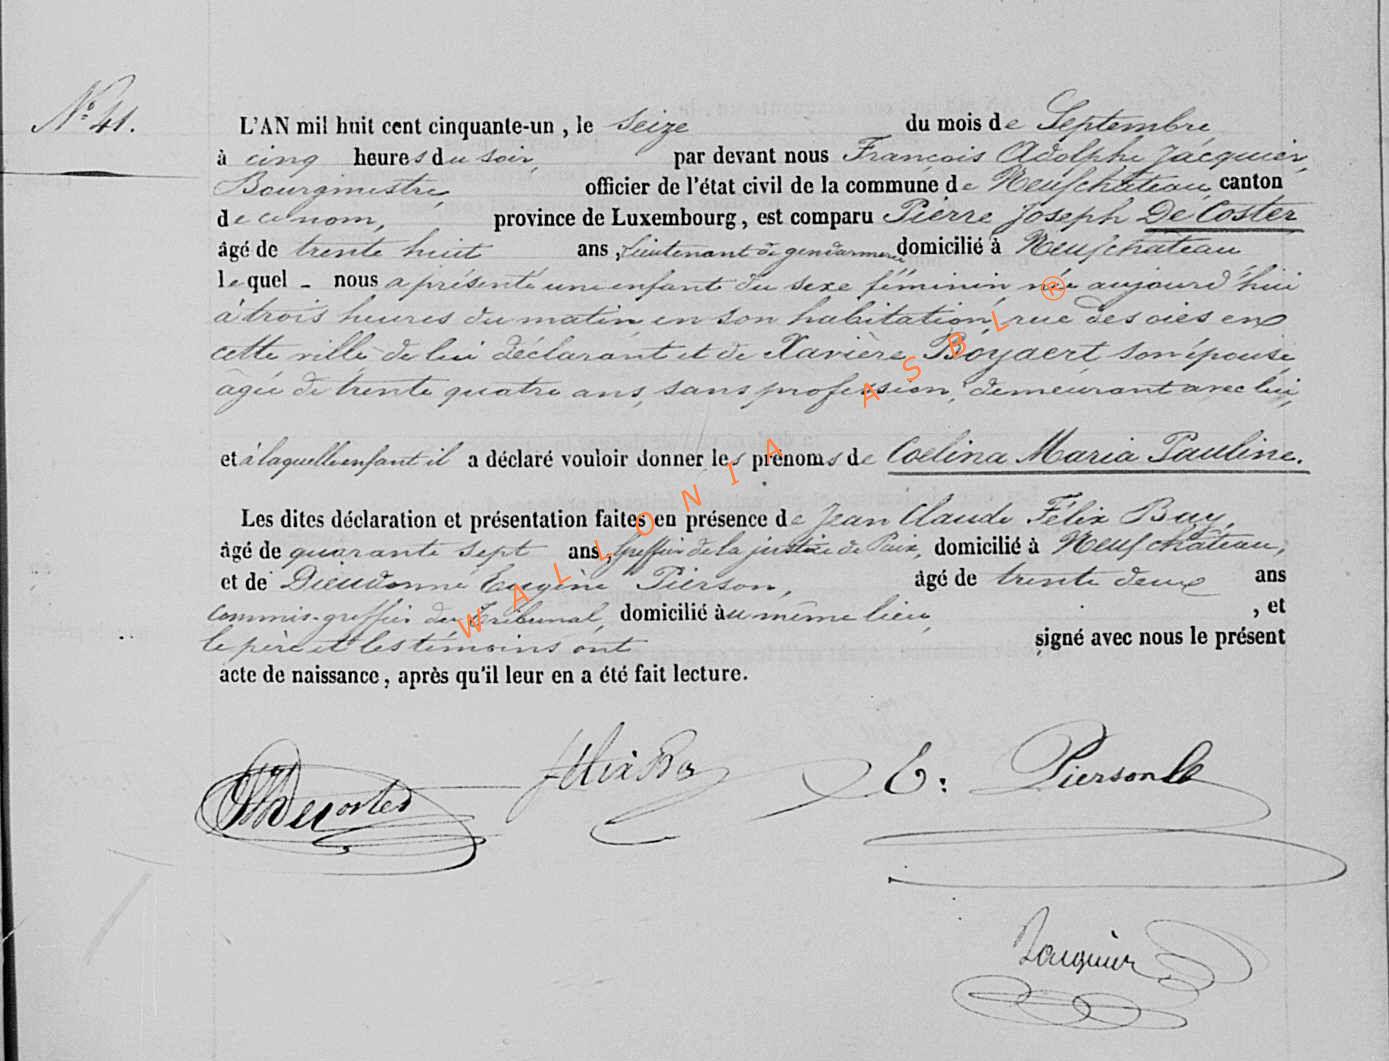 N° 41.
L'AN mil huit cent cinquante-un, le seize du mois de Septembre
à cinq heures du soir, par devant nous François Adolphe Jacquier,
Bourgmestre, officier de l'état civil de la commune de Neufchâteau, canton
de ce nom, province de Luxembourg, est comparu Pierre Joseph De Coster
âgé de trente huit ans, lieutenant de gendarmerie domicilié à Neufchâteau
lequel - nous a présenté une enfant du sexe féminin, née aujourd'hui
à trois heures du matin en son habitation, rue des oies en
cette ville de lui déclarant et de Xavière Boyaert son épouse
âgée de trente quatre ans, sans profession, demeurant avec lui,
et à laquelle enfant il a déclaré vouloir donner les prénoms de Coelina Maria Pauline.
Les dites déclaration et présentation faites en présence de Jean Claude Félix Bay,
âgé de quarante sept ans, Greffier de la justice de Paix, domicilié à Neufchâteau,
et de Dieudonné Eugène Pierson, âgé de trente deux ans
commis-greffier du Tribunal, domicilié au même lieu, , et
le père et les témoins ont signé avec nous le présent
acte de naissance, après qu'il leur en a été fait lecture.
Decoster Félix Bay E: Pierson
Jacquier
WALLONIA ASBL ®